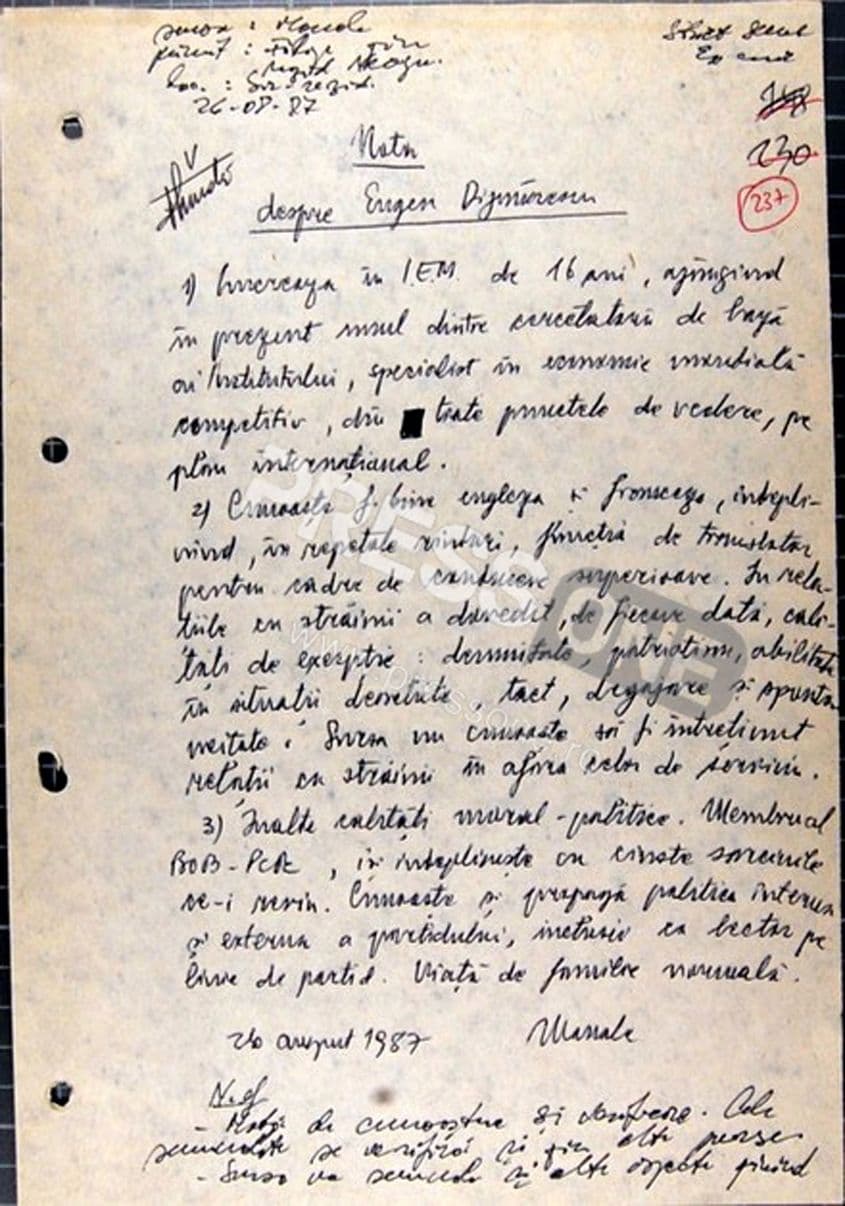 sursa : Manole
primit :
loc. :
26-08-87
Strict Secret
Ex unic
148
230
237
Nota
despre Eugen Dijmărescu
1) Lucreaza în I.E.M. de 16 ani, ajungînd
în prezent unul dintre cercetatorii de bază
ai Institutului, specialist în economie mondială
competitiv, din toate punctele de vedere, pe
plan internațional.
2) Cunoaste f. bine engleza și franceza, indepli-
nind, în repetate rinduri, funcția de translator
pentru cadre de conducere superioare. In rela-
tiile cu străinii a dovedit, de fiecare dată, cali-
tăti de exceptie : demnitate, patriotism, abilitate
în situatii deosebite, tact, degajare și sponta-
neitate. Sursa nu cunoaste să fi intretinut
relatii cu străinii în afara celor de serviciu.
3) Inalte calități moral-politice. Membru al
BOB-PCR, isi indeplineste cu cinste sarcinile
ce-i revin. Cunoaste si propagă politica interna
si externa a partidului, inclusiv ca lector pe
linie de partid. Viață de familie normală.
26 august 1987 Manole
PRESSONE
www.pressone.ro
- Notă de cunoaștere și verificare. Cele
semnalate se verifică și din alte surse
- Sursa va semnala și alte aspecte privind